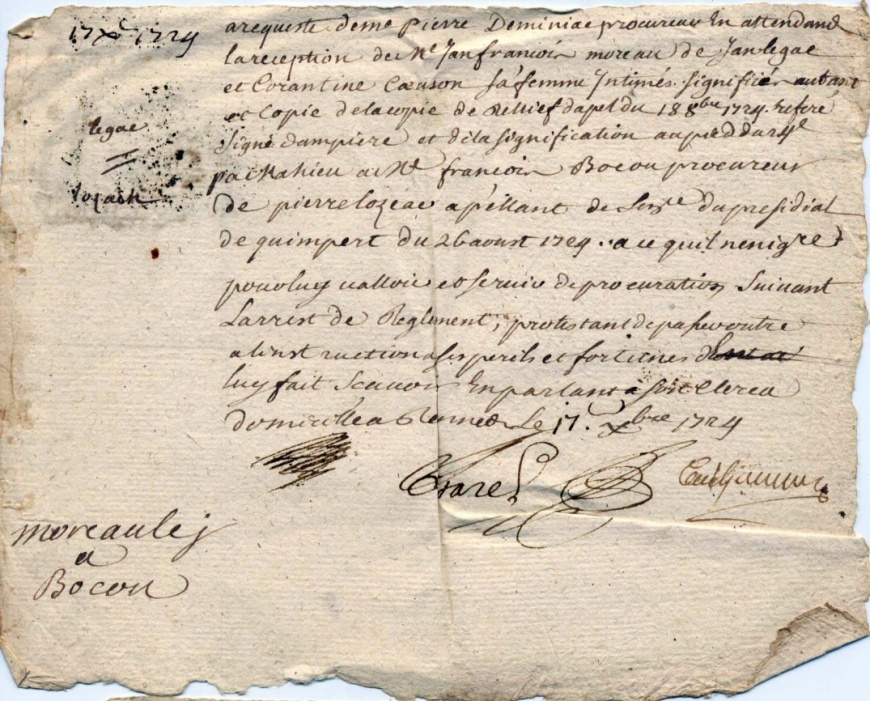 17 Xbre 1724
arequeste deme pierre Deminiac procureur En attendand
la reception de Me Jan francois moreau de Jan legac
et Corantine Causon sa femme Intimés signifiér autant
et Copie de la copie de Rellief dapel du 18 8bre 1724
signé dampiere et de la signification au pied du 24e
par Mahieu a Me francois Bocou procureur
de pierre lozeac apéllant de du presidial
de quimpert du 26 aoust 1724 . a ce quil nen igre
pour luy valloir et servir de procuration Suivant
Larrest de Reglement, protestant de passer outre
a linstruction a ses perils et fortunes
luy fait Scavoir En parlant a son Clerc a
domicille a Rennes Le 17. Xbre 1724
legac
lozach
moreau lej
a
Bocou